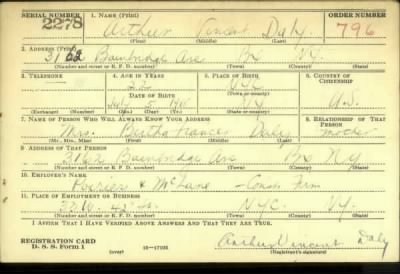 SERIAL NUMBER 1. NAME (Print) ORDER NUMBER
2278 Arthur Vincent Daly 796
(First) (Middle) (Last)
2. ADDRESS (Print)
3162 Bainbridge Ave Bx NY.
(Number and street or R. F. D. number) (Town) (County) (State)
3. TELEPHONE 4. AGE IN YEARS 5. PLACE OF BIRTH 6. COUNTRY OF CITIZENSHIP
DATE OF BIRTH (Town or county)
July 5 NY U.S.
(Exchange) (Number) (Mo.) (Day) (Yr.) (State or country)
7. NAME OF PERSON WHO WILL ALWAYS KNOW YOUR ADDRESS 8. RELATIONSHIP OF THAT PERSON
Mrs. Bertha Frances Daly mother
(Mr., Mrs., Miss) (First) (Middle) (Last)
9. ADDRESS OF THAT PERSON
3162 Bainbridge Ave Bx NY
(Number and street or R. F. D. number) (Town) (County) (State)
10. EMPLOYER'S NAME
Poirier & McLane - Const Firm
11. PLACE OF EMPLOYMENT OR BUSINESS
33 W. 42 St. NYC. NY.
(Number and street or R. F. D. number) (Town) (County) (State)
I AFFIRM THAT I HAVE VERIFIED ABOVE ANSWERS AND THAT THEY ARE TRUE.
REGISTRATION CARD
D. S. S. Form 1 (over) 16-17105 Arthur Vincent Daly
(Registrant's signature)